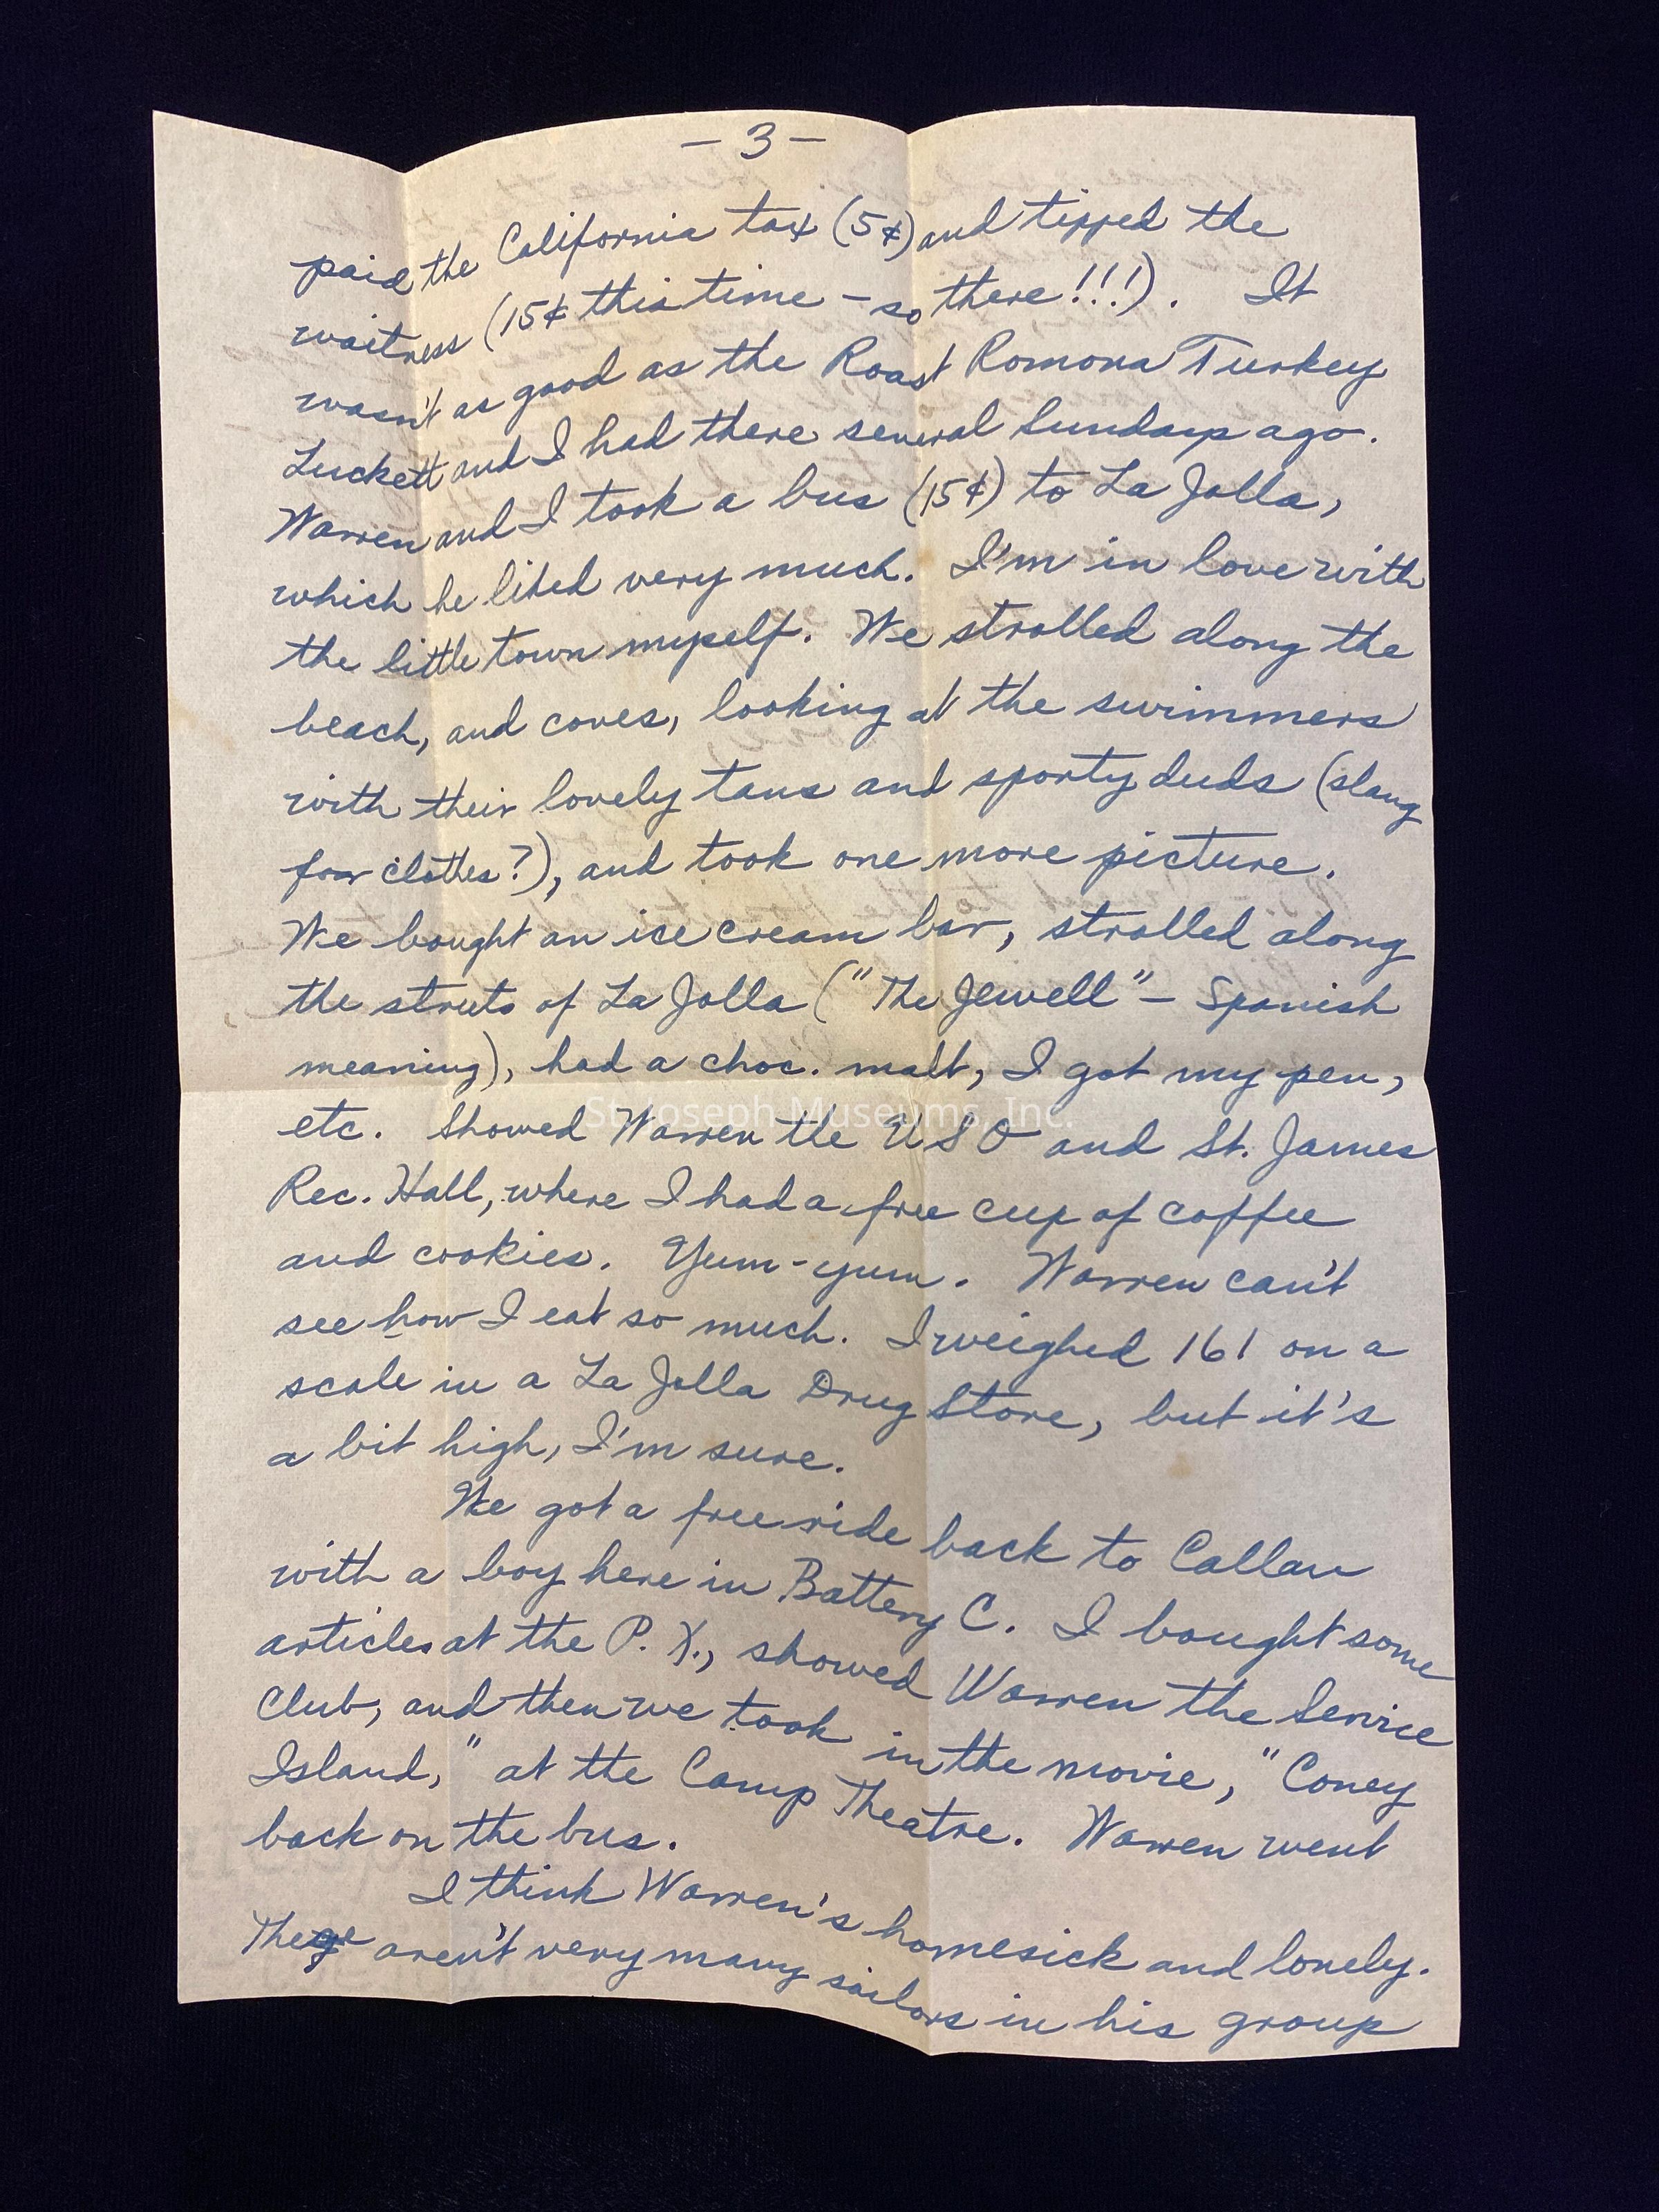 - 3 -
paid the California tax (5¢) and tipped the
waitress (15¢ this time - so there!!!). It
wasn't as good as the Roast Romona Turkey
Luckett and I had there several Sundays ago.
Warren and I took a bus (15¢) to La Jolla,
which he liked very much. I'm in love with
the little town myself. We strolled along the
beach, and coves, looking at the swimmers
with their lovely tans and sporty duds (slang
for clothes?), and took one more picture.
We bought an ice cream bar, strolled along
the streets of La Jolla ("The Jewell" - Spanish
meaning), had a choc. malt, I got my pen,
St. Joseph Museums, Inc.
etc. Showed Warren the USO and St. James
Rec. Hall, where I had a free cup of coffee
and cookies. Yum-yum. Warren can't
see how I eat so much. I weighed 161 on a
scale in a La Jolla Drug Store, but it's
a bit high, I'm sure.
We got a free ride back to Callan
with a boy here in Battery C. I bought some
articles at the P. X., showed Warren the Service
Club, and then we took in the movie, "Coney
Island," at the Camp Theatre. Warren went
back on the bus.
I think Warren's homesick and lonely.
There aren't very many sailors in his group